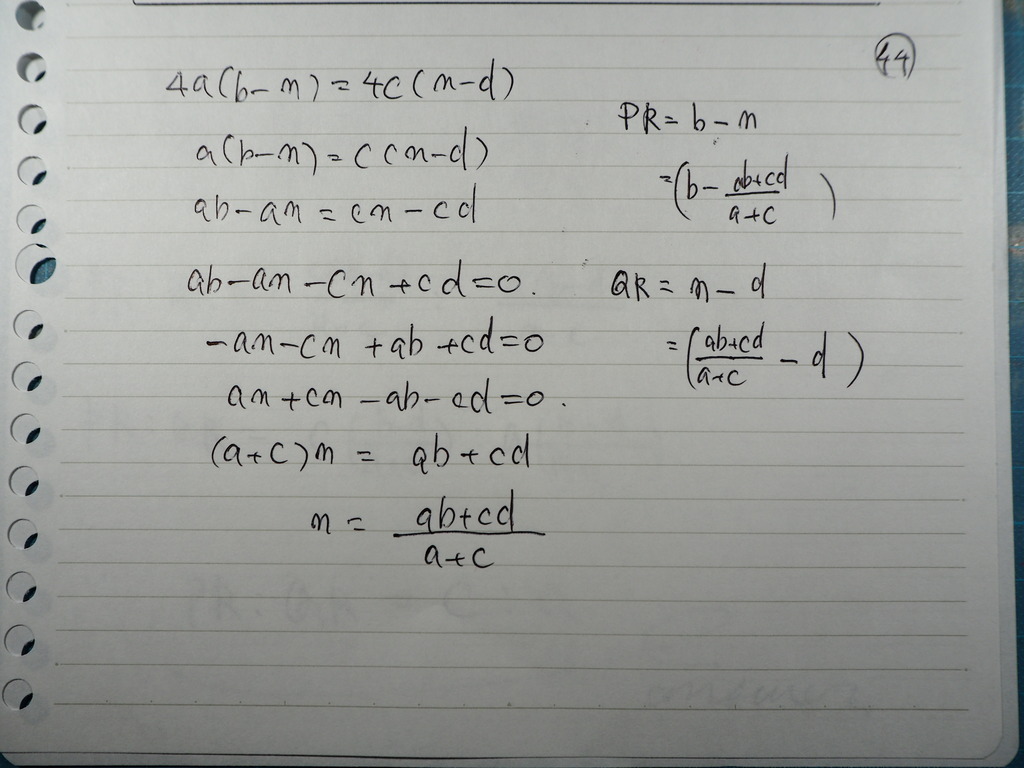 44
4a(b-n)=4c(n-d)
a(b-n)=c(n-d)
ab-an=cn-cd
ab-an-cn+cd=0.
-an-cn+ab+cd=0
an+cn-ab-cd=0.
(a+c)n = ab+cd
n = \frac{ab+cd}{a+c}
PR=b-n
=(b-\frac{ab+cd}{a+c})
QR=n-d
=(\frac{ab+cd}{a+c}-d)